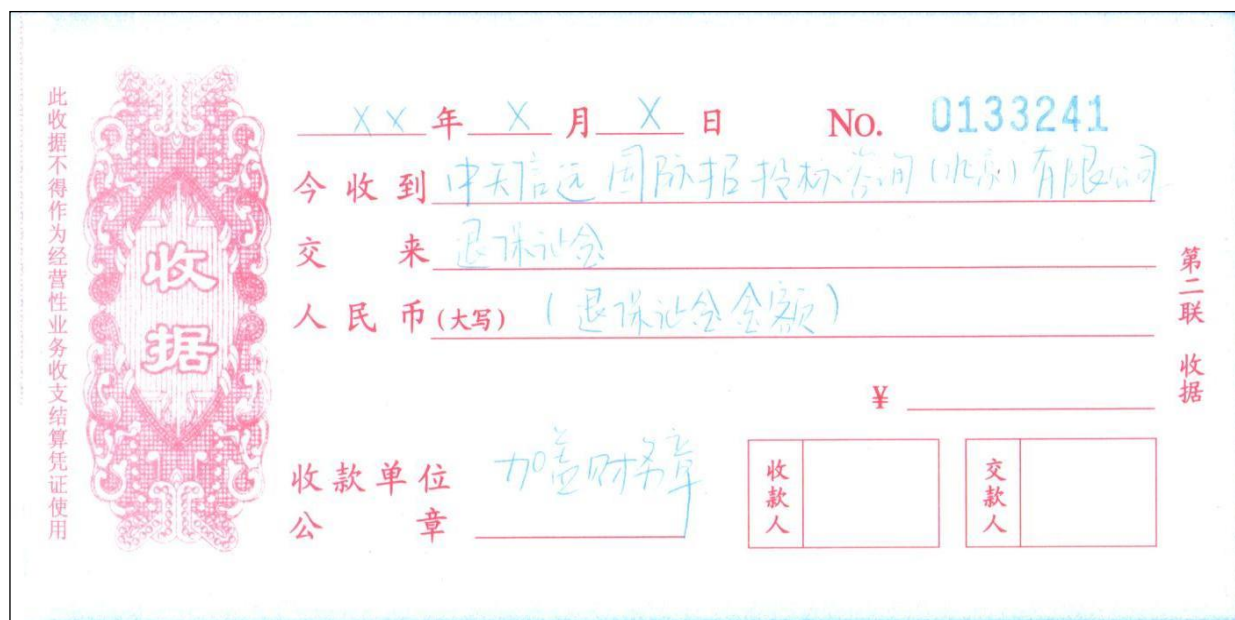 此收据不得作为经营性业务收支结算凭证使用
收据
XX年X月X日 No. 0133241
今收到 中天信远国际招投标咨询(北京)有限公司
交来 退保证金
人民币(大写) (退保证金金额)
¥
收款单位 加盖财务章
公章
收款人
交款人
第二联 收据